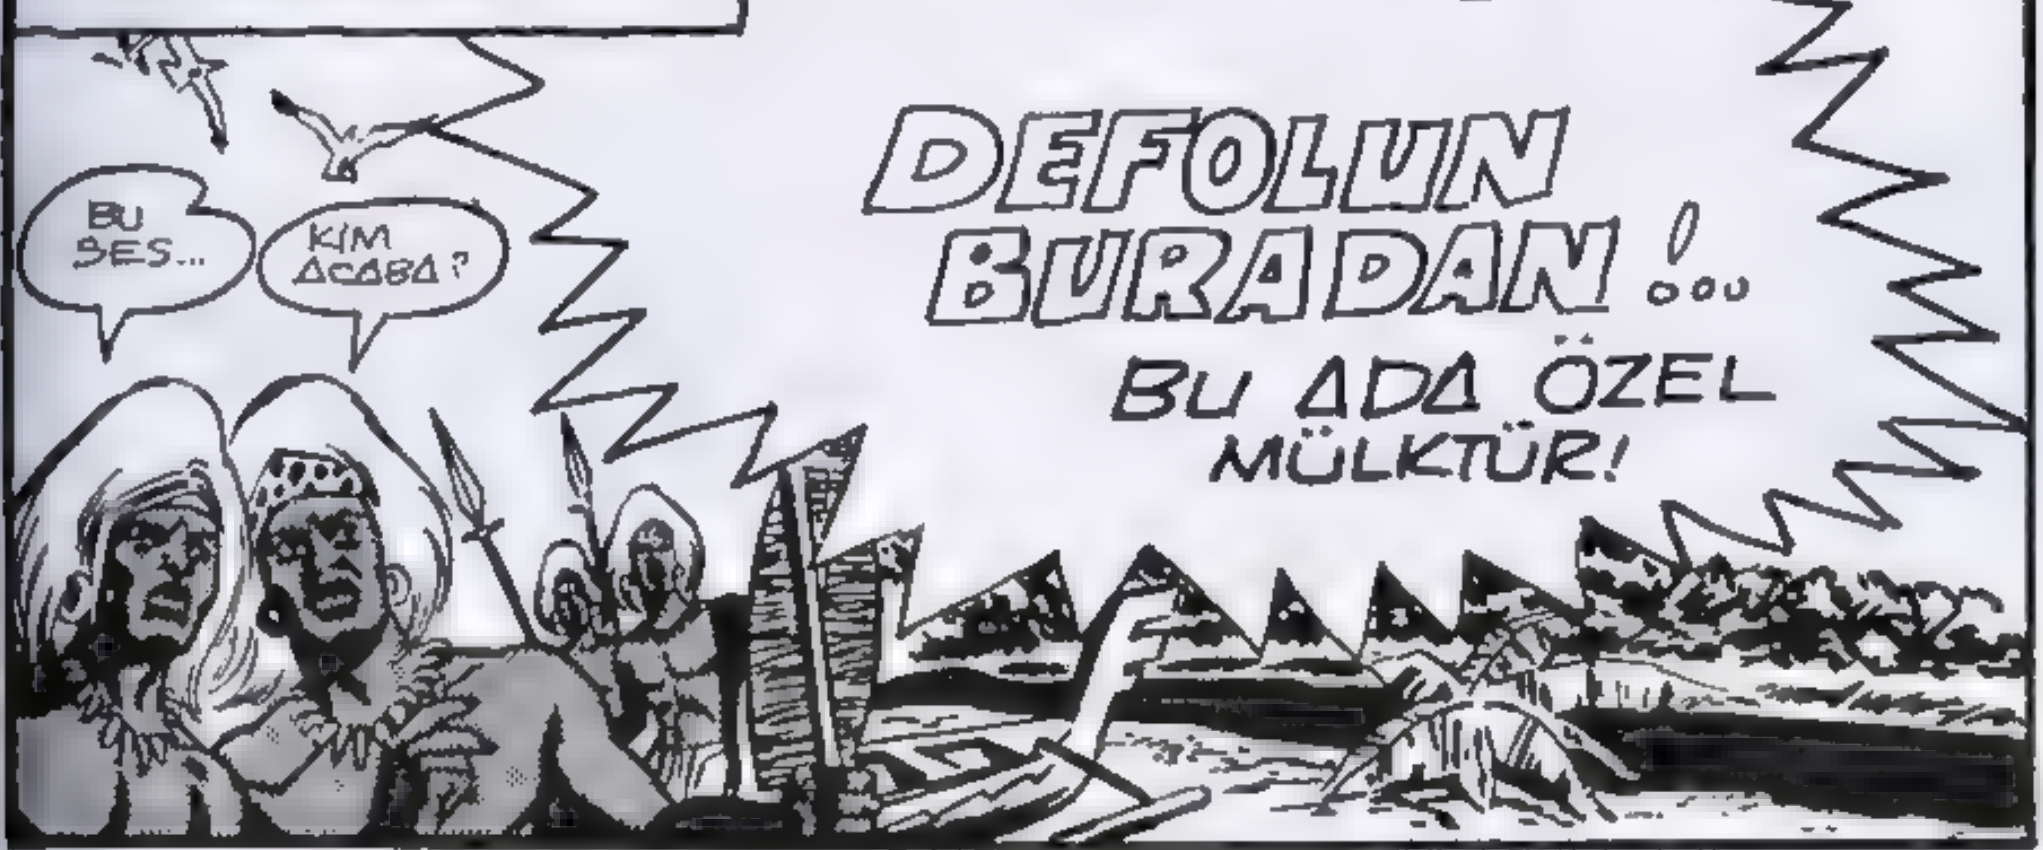 BU
SES...
KİM
ACABA?
DEFOLUN
BURADAN!...
BU ADA ÖZEL
MÜLKTÜR!